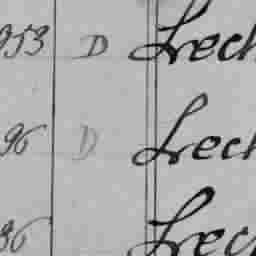 953 D Lrech
96 D Lrech
36 Lrec